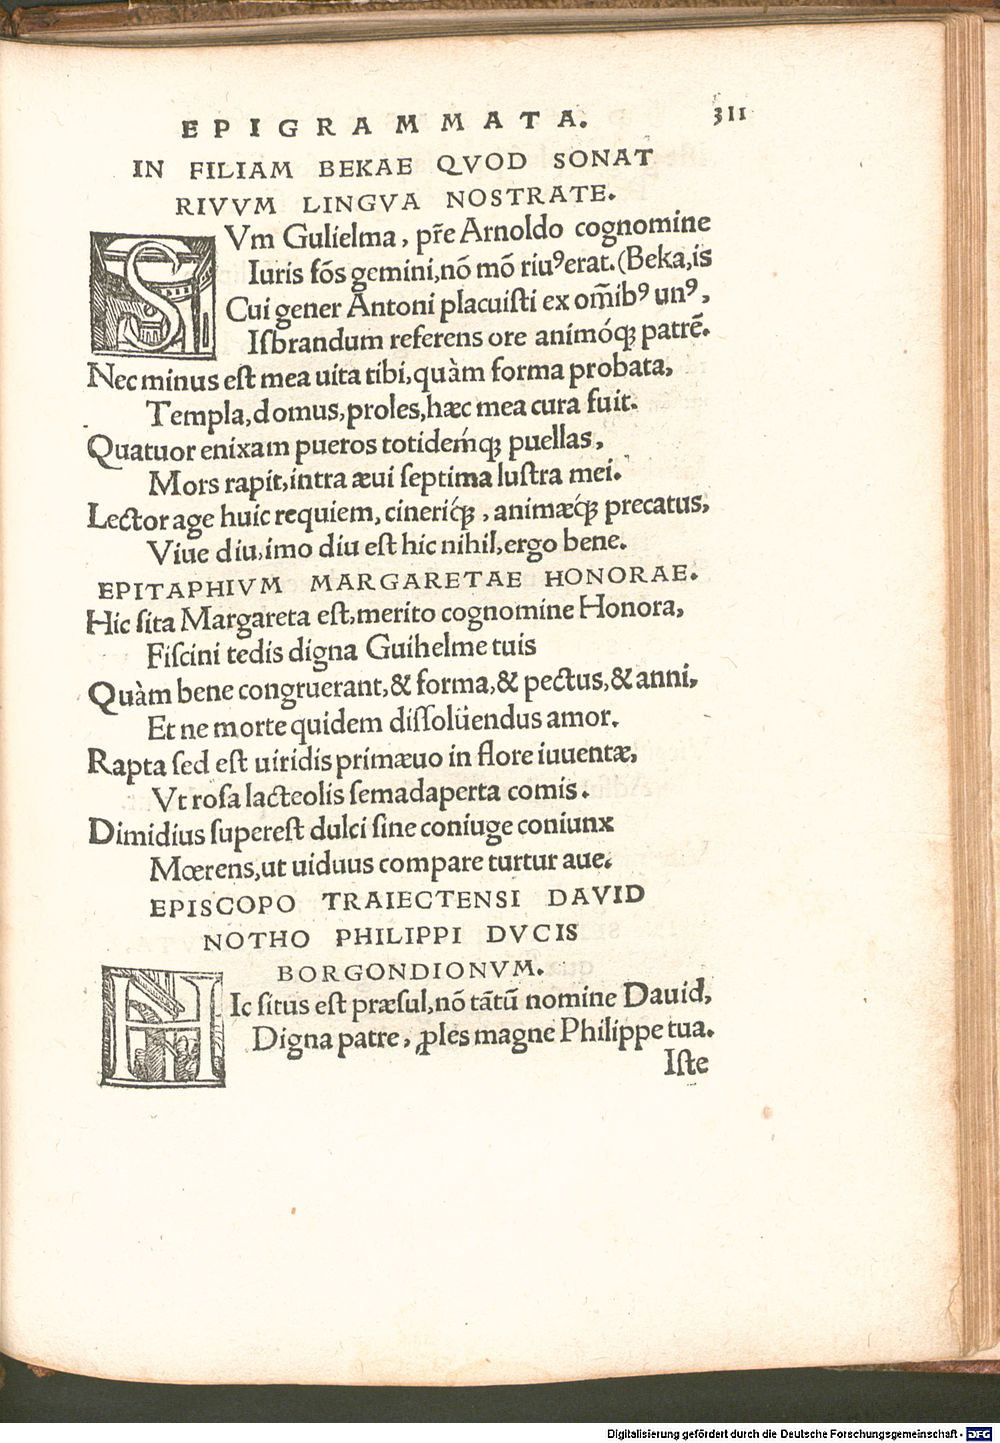 EPIGRAMMATA. 311
IN FILIAM BEKAE QVOD SONAT
RIVVM LINGVA NOSTRATE.
SVm Gulielma, pr̃e Arnoldo cognomine
Iuris fõs gemini, nõ mõ riuꝰ erat. (Beka, is
Cui gener Antoni placuiſti ex om̃ibꝰ unꝰ,
Iſbrandum referens ore animóqꝫ patrẽ.
Nec minus eſt mea uita tibi, quàm forma probata,
Templa, domus, proles, hæc mea cura fuit.
Quatuor enixam pueros totideḿqꝫ puellas,
Mors rapit, intra æui ſeptima luſtra mei.
Lector age huic requiem, cineriq́ꝫ, animæq́ꝫ precatus,
Viue diu, imo diu eſt hic nihil, ergo bene.
EPITAPHIVM MARGARETAE HONORAE.
Hic ſita Margareta eſt, merito cognomine Honora,
Fiſcini tedis digna Guihelme tuis
Quàm bene congruerant, & forma, & pectus, & anni,
Et ne morte quidem diſſolüendus amor.
Rapta ſed eſt uiridis primæuo in flore iuuentæ,
Vt roſa lacteolis ſemadaperta comis.
Dimidius ſupereſt dulci ſine coniuge coniunx
Mœrens, ut uiduus compare turtur aue.
EPISCOPO TRAIECTENSI DAVID
NOTHO PHILIPPI DVCIS
BORGONDIONVM.
HIc ſitus eſt præſul, nõ tãtũ nomine Dauid,
Digna patre, ꝓles magne Philippe tua.
Iſte
Digitalisierung gefördert durch die Deutsche Forschungsgemeinschaft - DFG